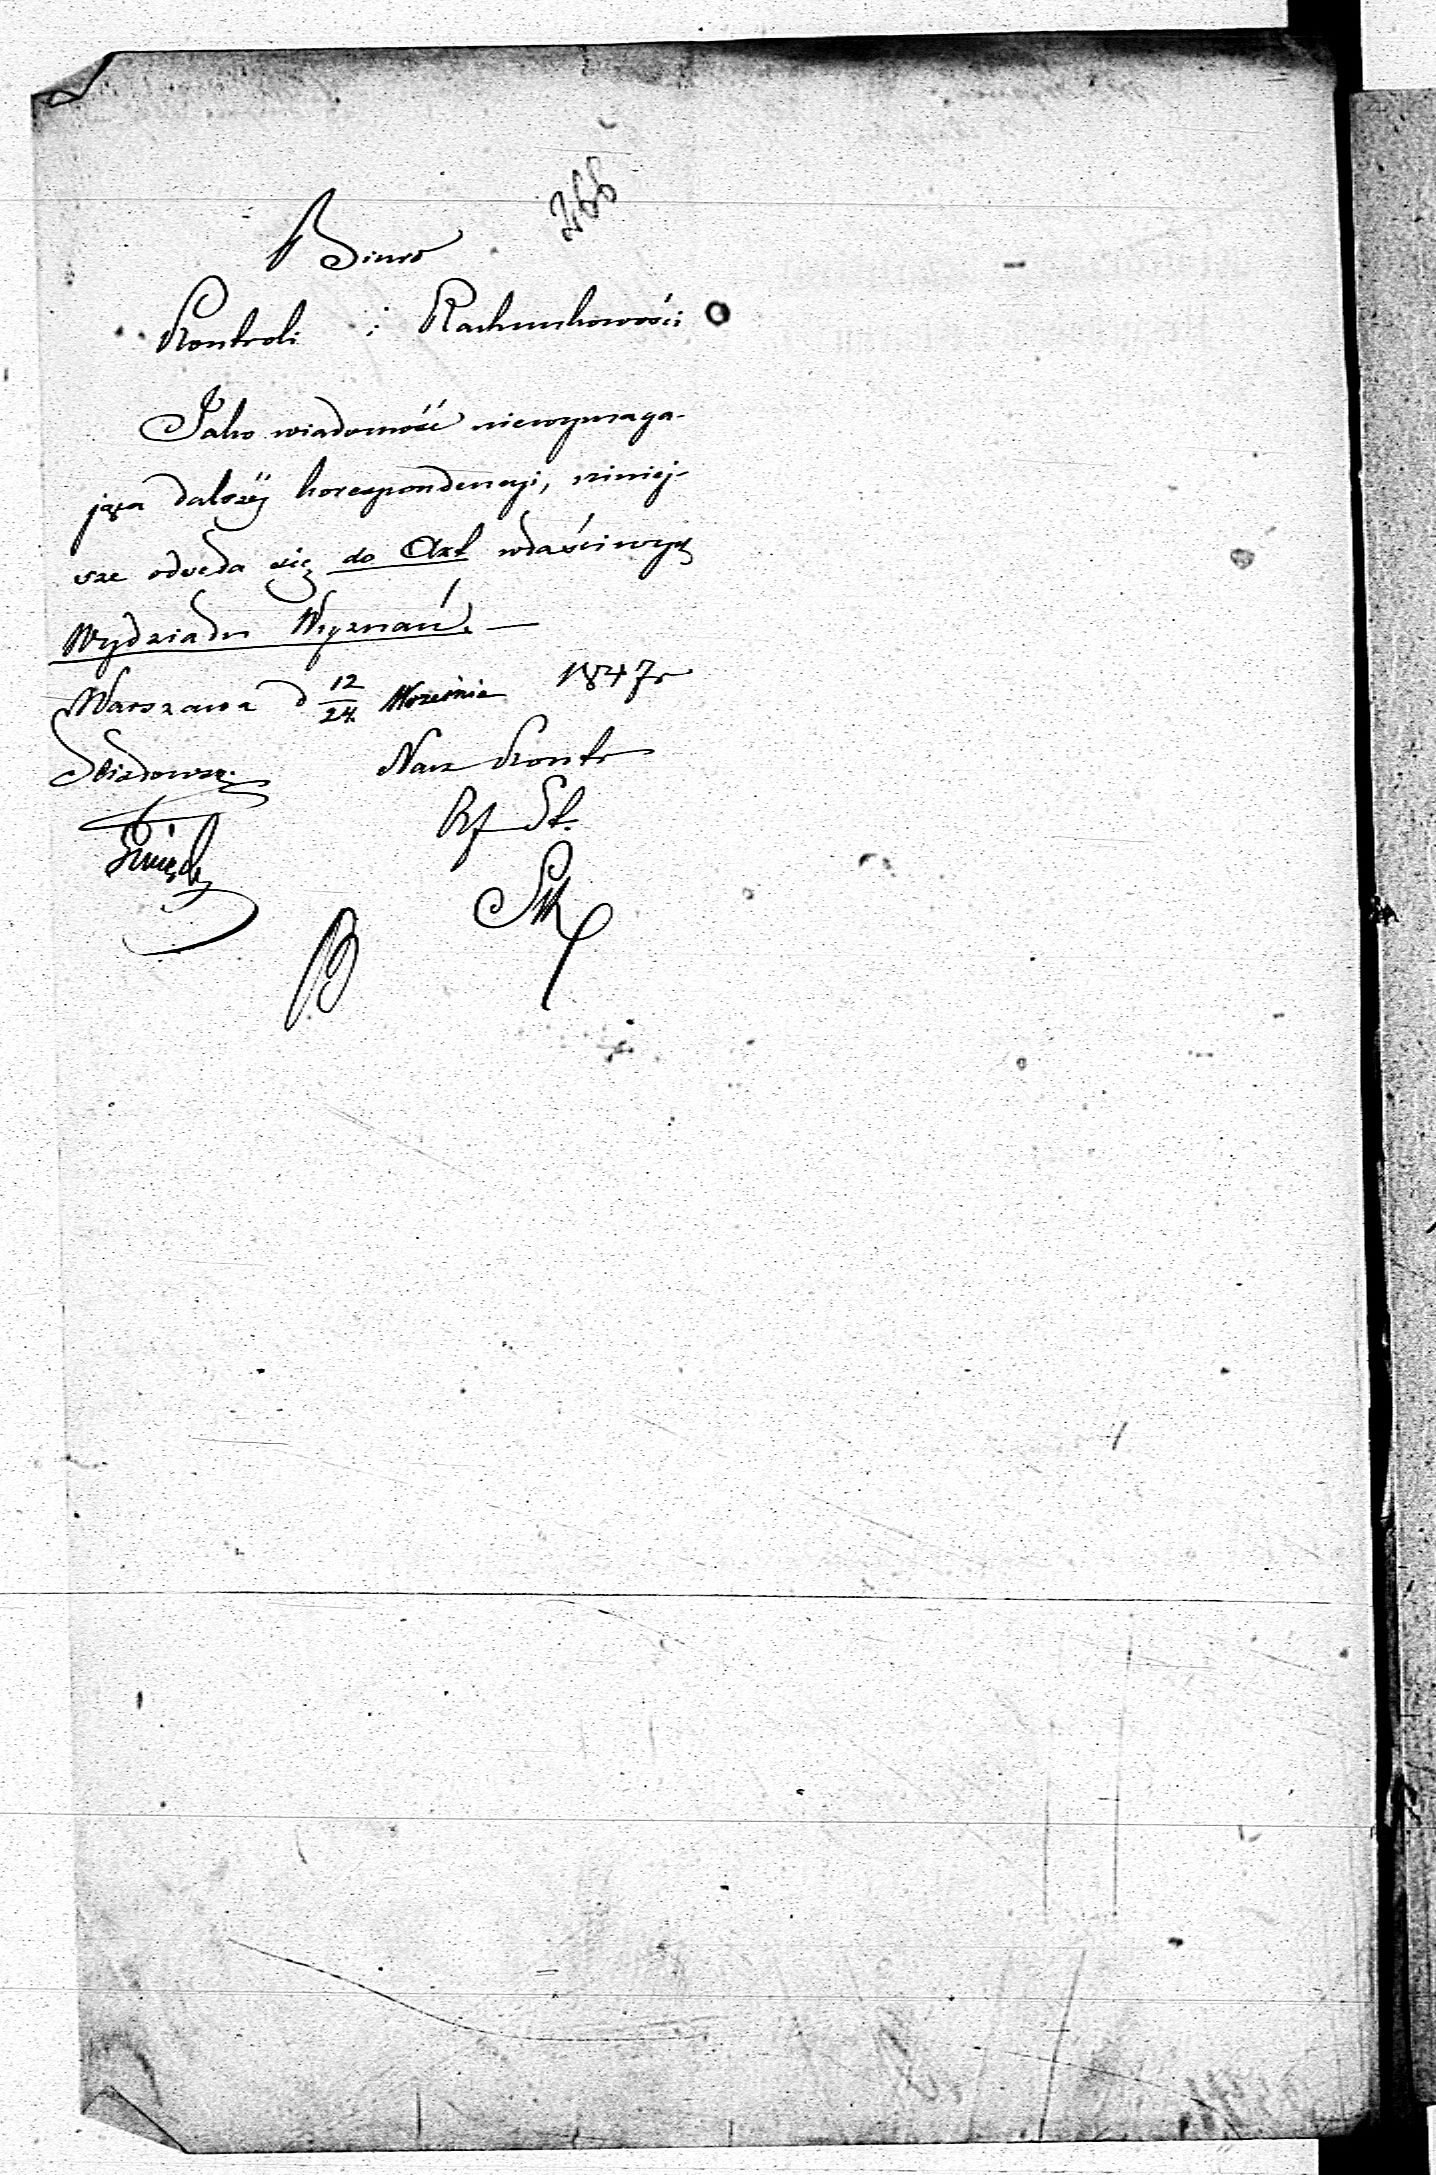 268
Biuro
Kontroli i Rachunkowości
Jako wiadomość niewymaga-
jąca dalszéj korespondencyi, niniej-
sze odseła się do Akt właściwych
Wydziału Wyznań. —
Warszawa d 12/24 Września 1847 r
Nacz Kontr
Rf St.